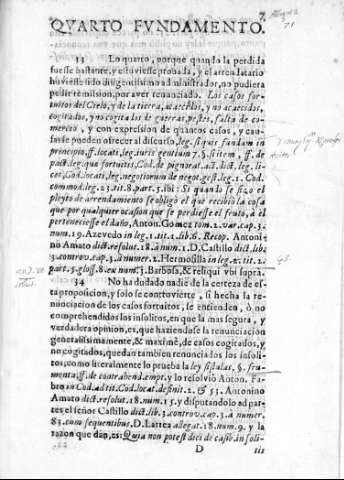 QVARTO FVNDAMENTO.
33 Lo quarto, porque quando la perdida
fuesse bastante, y estuviesse probada, y el arrendatario
huviesse sido diligentissimo administrador, no pudiera
pedir remission, por aver renunciado. Los casos for-
tuitos del Cielo, y de la tierra, acaecidos, y no acaecidos,
cogitados, y no cogitados de guerras, pestes, falta de co-
mercio, y con expresion de quantos casos, y cau-
sas se pueden ofrecer al discurso, leg. si quis fundum in
principio, ff. locati, leg. iuris gentium 7. §. si item, ff. de
pact. leg. quæ fortuitis, Cod. de pignorat. act. dict. leg. li-
cet, Cod. locati, leg. negotiorum de negot. gest. leg. 1. Cod.
commod. leg. 23. tit. 8. part. 5. ibi: Si quando se fizo el
pleyto de arrendamiento se obligò el que recibiò la cosa
que por qualquier ocasion que se perdiesse el fruto, à el
perteneciesse el daño, Anton. Gomez tom. 2. var. cap. 3.
num. 19. Azevedo in leg. 1. tit. 1. lib. 6. Recop. Antoni-
no Amato dict. resolut. 18. à num. 1. D. Castillo dict. lib. 3
controv. cap. 3. à numer. 1. Hermosilla in leg. 2. tit. 2.
part. 5. gloss. 8. ex num. 3. Barbosa, & reliqui vbi supra.
34 No ha dudado nadie de la certeza de es-
ta proposicion, y solo se controvierte, si hecha la re-
nunciacion de los casos fortuitos, se entienden, ò no
comprehendidos los insolitos, en que la mas segura, y
verdadera opinion, es, que haziendose la renunciacion
generalissimamente, & maximè, de casos cogitados, y
no cogitados, quedan tambien renunciados los insoli-
tos, como literalmente lo prueba la ley sistulas, §. fru-
menta, ff. de contrahend. empt. y lo resolviò Anton. Fa-
bro in Cod. ad tit. Cod. locat. definit. 2. & 53. Antonino
Amato dict. resolut. 18. num. 15. y disputandolo ad par-
tes el señor Castillo dict. lib. 3. controv. cap. 3. à numer.
83. cum sequentibus, D. Larrea allegat. 18. num. 9. y la
razon que dàn, es: Quia non potest dici de casib. insoli-
D iii